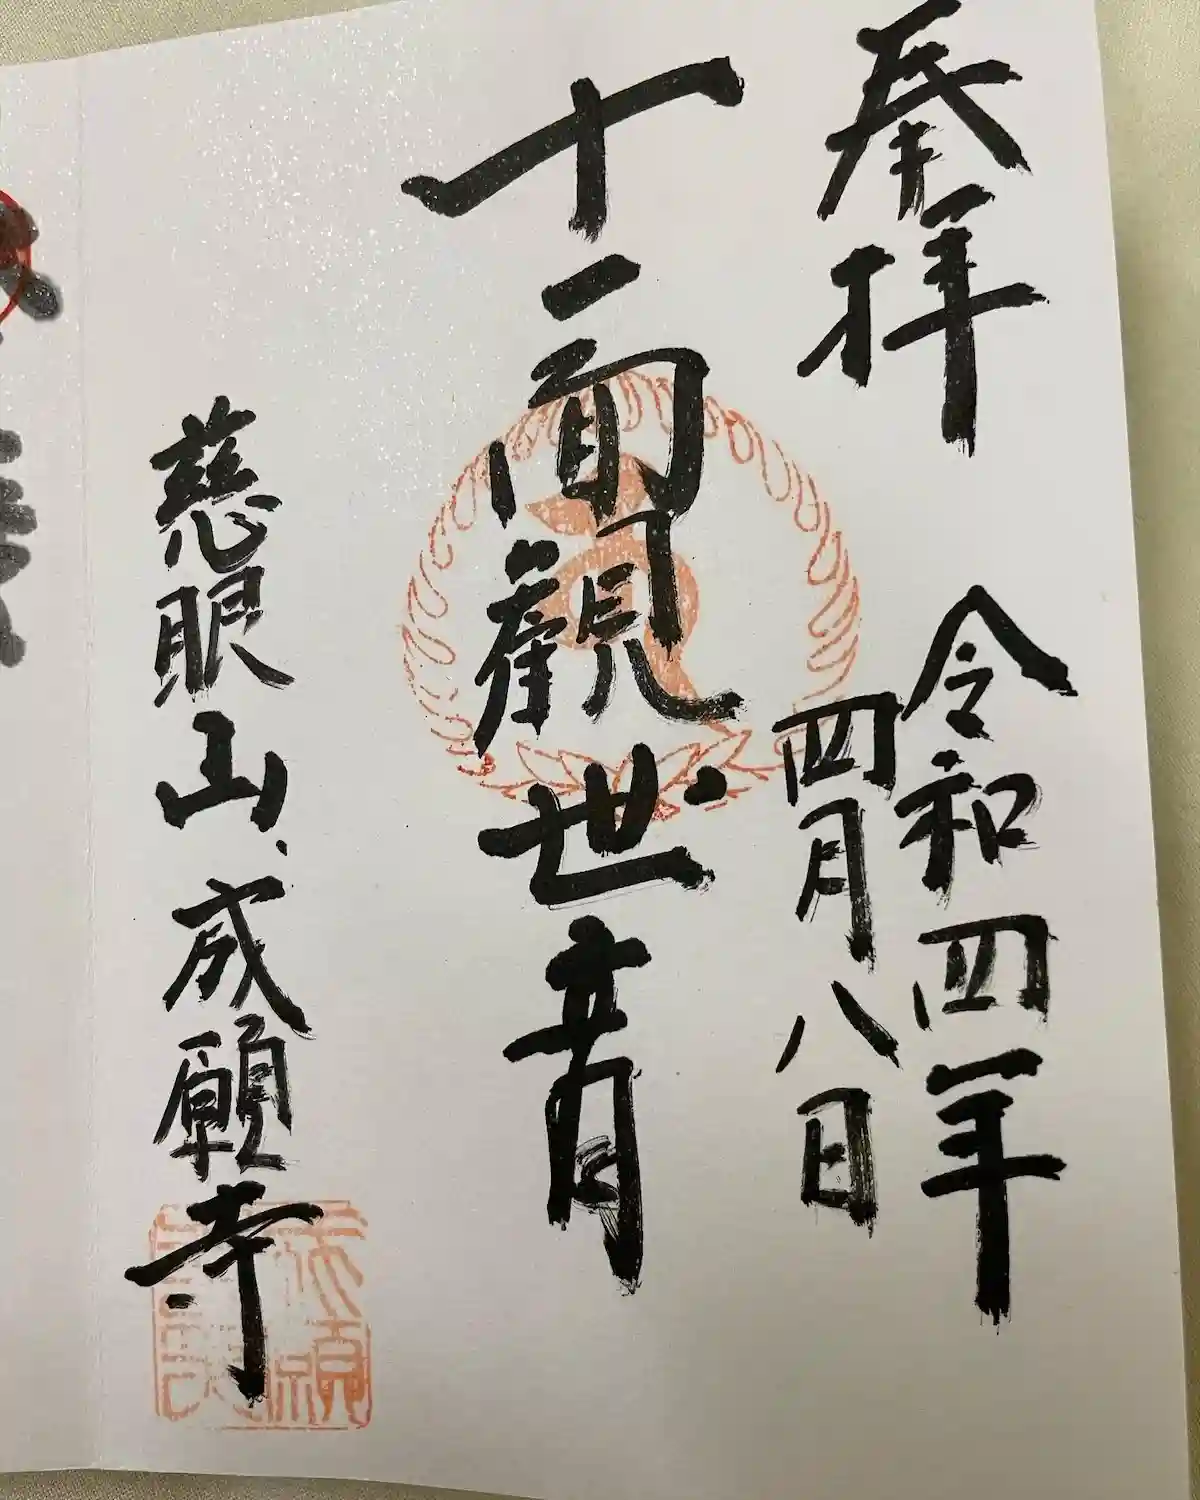 奉拝
令和四年
四月八日
十一面観世音
慈眼山 成願寺